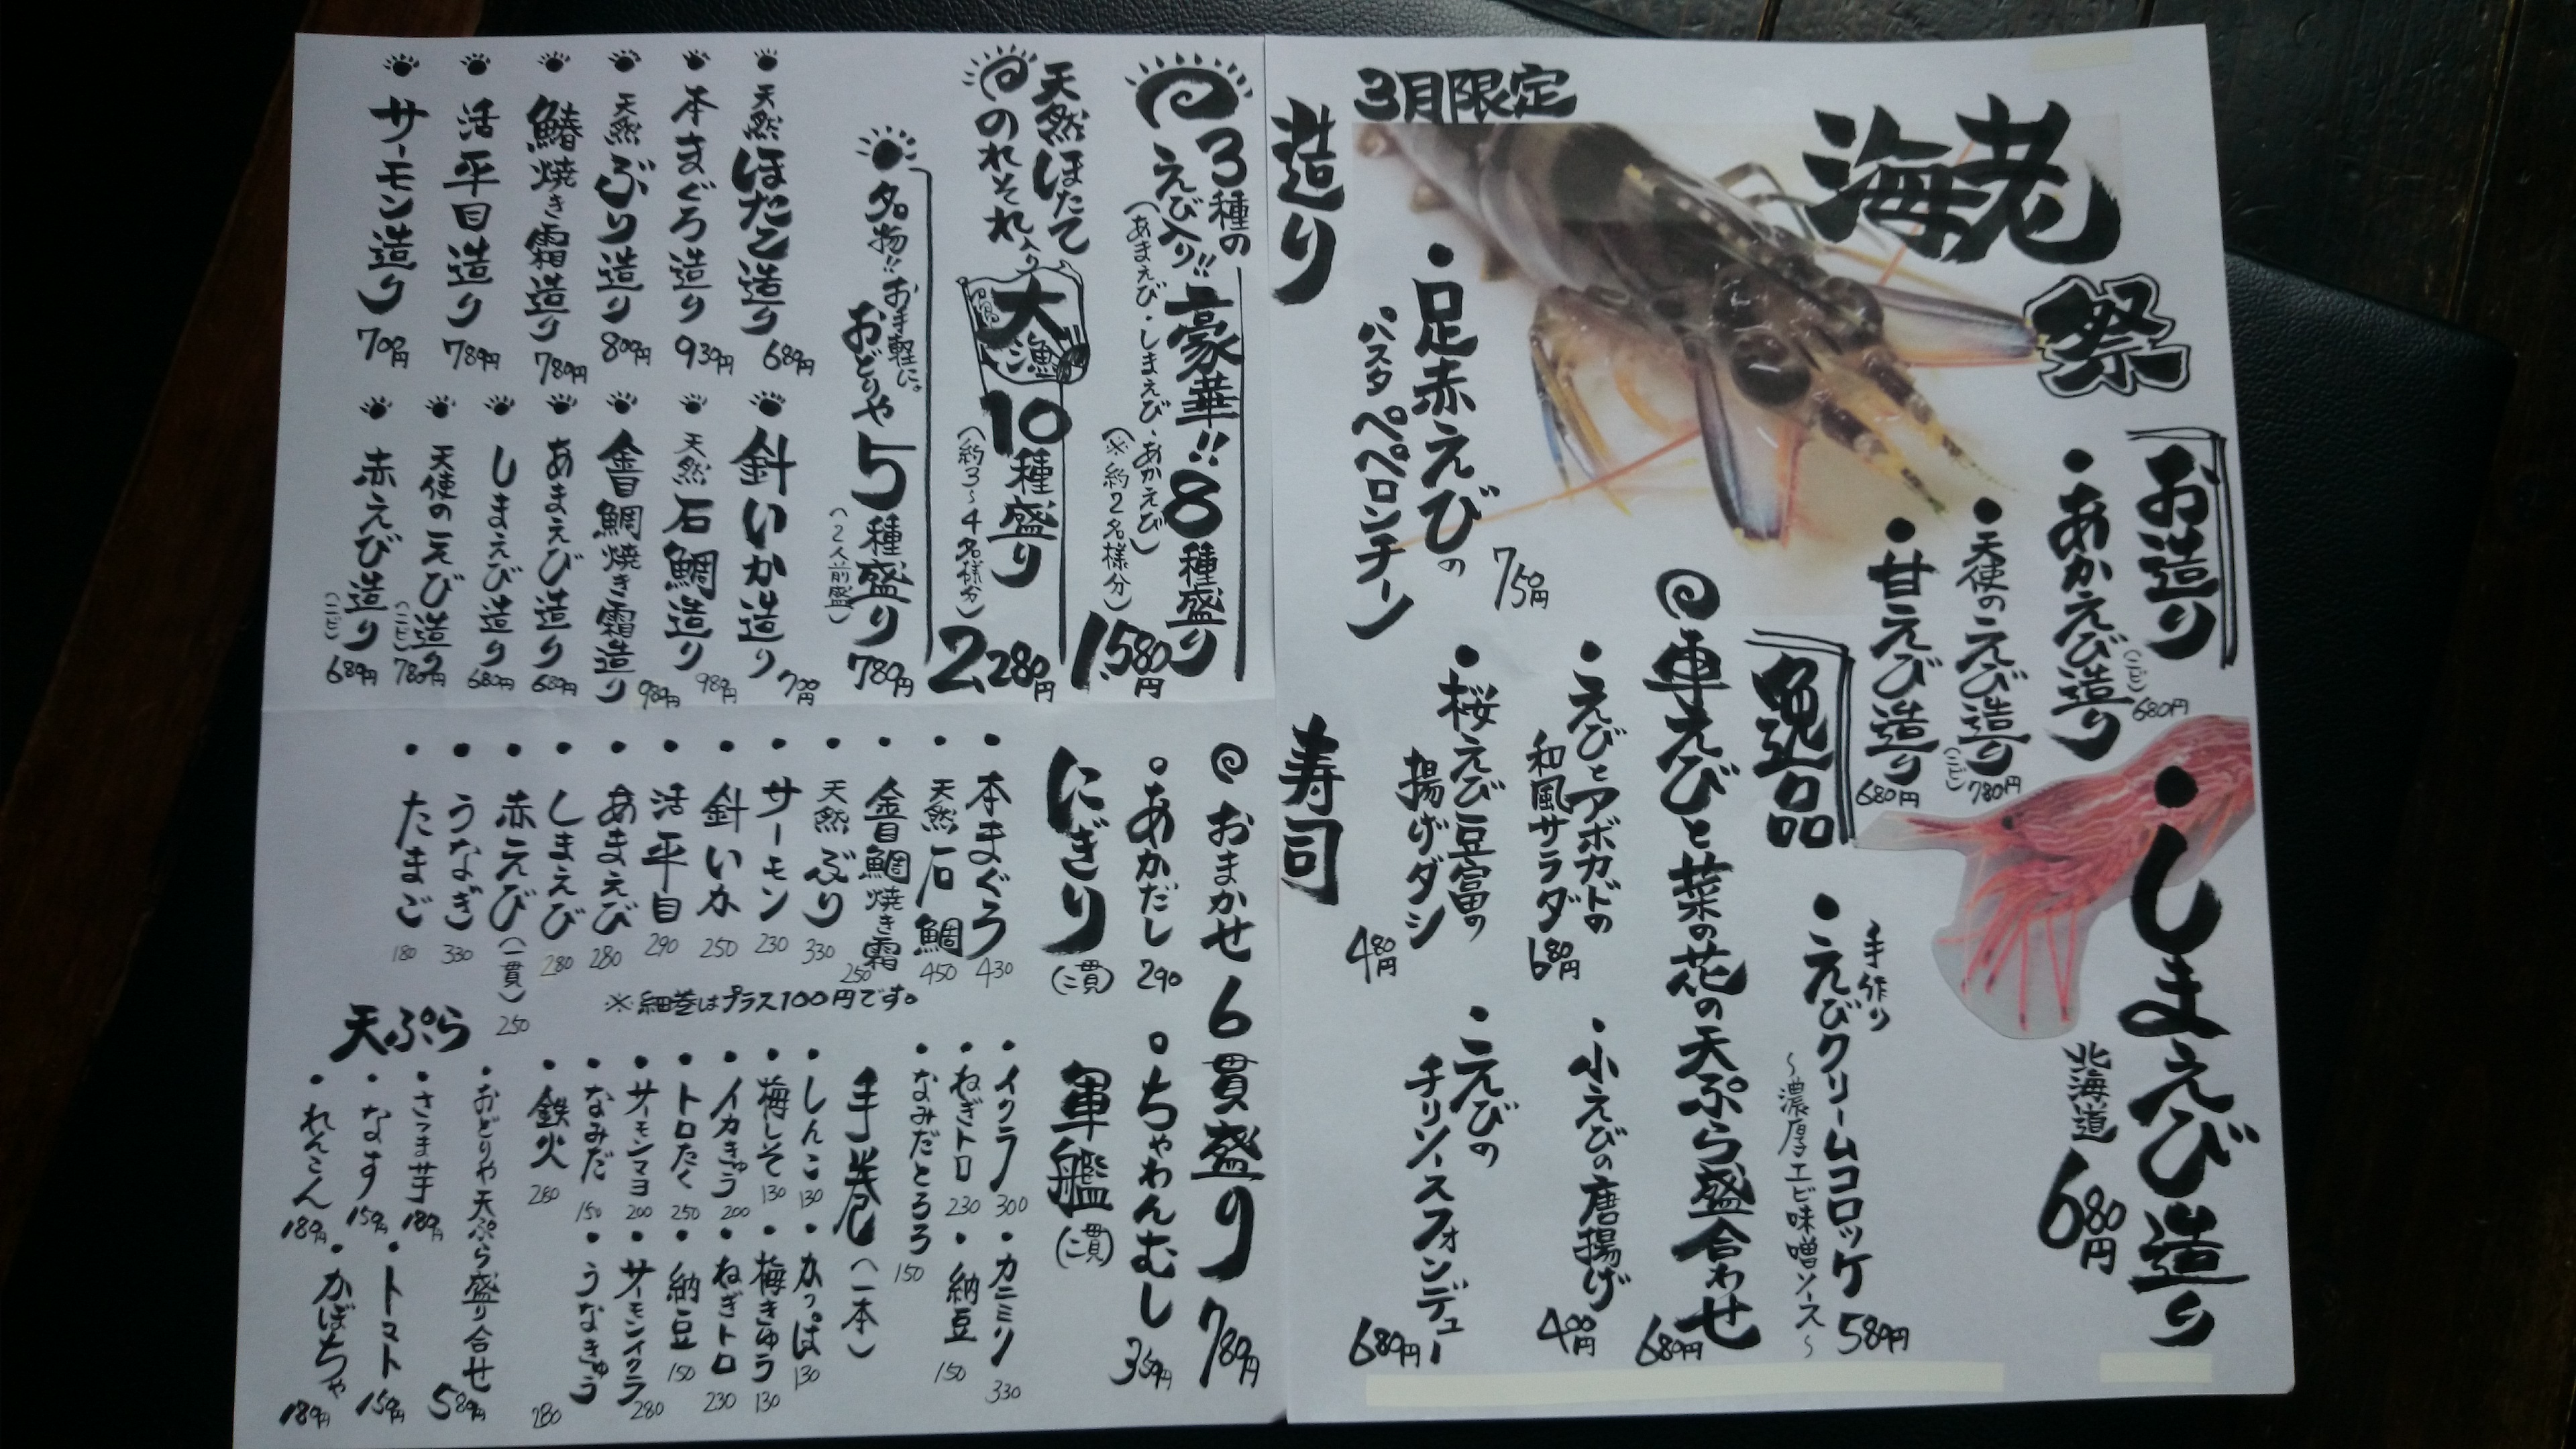 3月限定
海老
祭
お造り
・あかえび造り
(二ピ)
680円
・天使のえび造り
(二ピ)
780円
・甘えび造り
680円
・しまえび造り
北海道
680円
逸品
手作り
・えびクリームコロッケ
～濃厚エビ味噌ソース～
580円
車えびと菜の花の天ぷら盛合わせ
680円
・えびとアボカドの
和風サラダ
680円
・小えびの唐揚げ
400円
・桜えび豆富の
揚げダシ
480円
・えびの
チリソースフォンデュー
680円
・足赤えびの
パスタペペロンチーノ
750円
造り
3種の
えび入り!!
(あまえび・しまえび・あかえび)
豪華!!8種盛り
(※約2名様分)
1,580円
天然ほたて
のれそれ入り
大漁
10種盛り
(約3～4名様分)
2,280円
名物!!お手軽に。
おどりや5種盛り
(2人前盛)
780円
天然ほたて造り
680円
本まぐろ造り
930円
天然ぶり造り
800円
鰆焼き霜造り
780円
活平目造り
780円
サーモン造り
700円
針いか造り
700円
天然石鯛造り
980円
金目鯛焼き霜造り
980円
あまえび造り
680円
しまえび造り
680円
天使のえび造り
(二ピ)
780円
赤えび造り
(二ピ)
680円
寿司
おまかせ6貫盛り
780円
・あかだし 290
・ちゃわんむし
350円
にぎり(二貫)
・本まぐろ 430
・天然石鯛 450
・金目鯛焼き霜 250
・天然ぶり 330
・サーモン 230
・針いか 250
・活平目 290
・あまえび 280
・しまえび 280
・赤えび(一貫) 250
・うなぎ 330
・たまご 180
※細巻はプラス100円です。
軍艦(二貫)
・イクラ 300
・カニミソ 330
・ねぎトロ 230
・納豆 150
・なみだとろろ 150
手巻(一本)
・しんこ 130
・かっぱ 130
・梅しそ 130
・梅きゅう 130
・イカきゅう 200
・ねぎトロ 230
・トロたく 250
・納豆 150
・サーモンマヨ 200
・サーモンイクラ 280
・なみだ 150
・うなきゅう 280
・鉄火 280
天ぷら
・おどりや天ぷら盛り合せ
580円
・さつま芋 180円
・なす 150円
・トマト 150円
・れんこん 180円
・かぼちゃ 180円